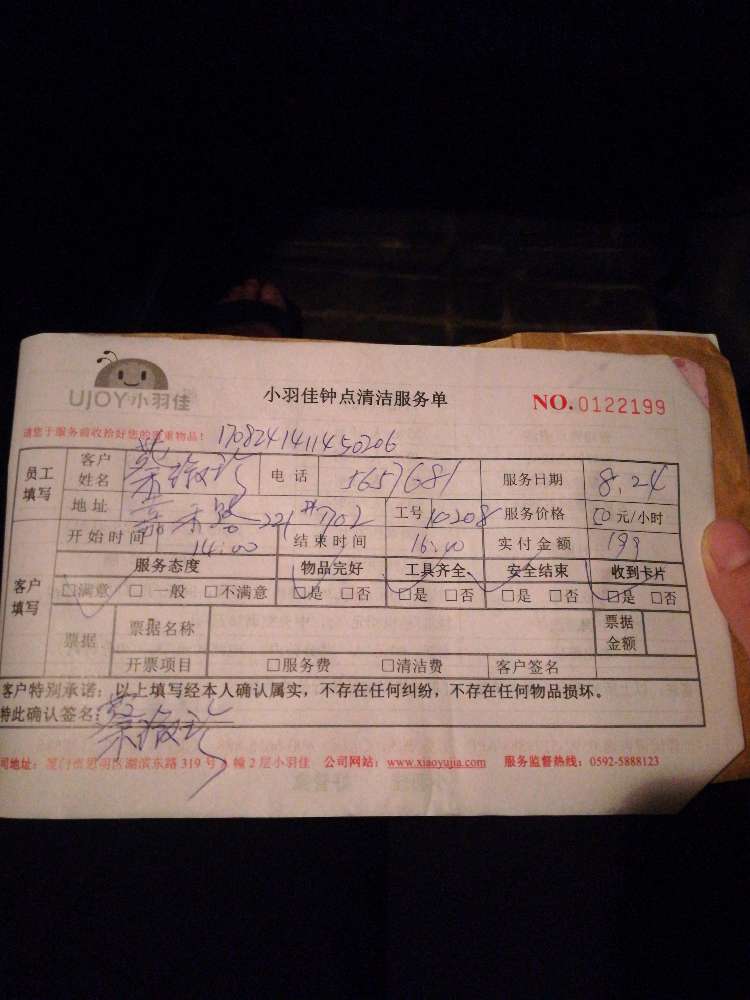 UJOY小羽佳 小羽佳钟点清洁服务单 NO.0122199
请您于服务前收拾好您的贵重物品! 1708241411450206
员工填写 客户姓名 电话 5657681 服务日期 8.24
地址 221# 702 工号 10208 服务价格 元/小时
开始时间 14:00 结束时间 16:40 实付金额 199
客户填写 服务态度 物品完好 工具齐全 安全结束 收到卡片
□满意 □一般 □不满意 □是 □否 □是 □否 □是 □否 □是 □否
票据 票据名称 票据金额
开票项目 □服务费 □清洁费 客户签名
客户特别承诺:以上填写经本人确认属实,不存在任何纠纷,不存在任何物品损坏。
特此确认签名:
司地址:厦门市思明区湖滨东路 319 号 幢 2 层小羽佳 公司网站:www.xiaoyujia.com 服务监督热线:0592-5888123